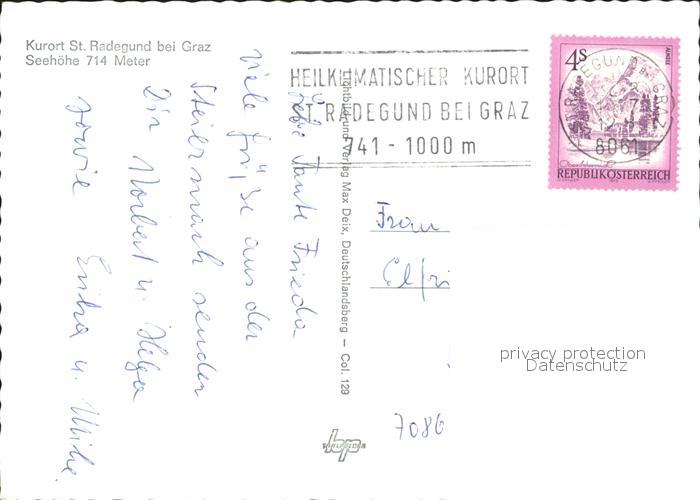 Kurort St. Radegund bei Graz
Seehöhe 714 Meter
Liebe Tante Frieda
viele Grüße aus der
Steiermark senden
Dir Norbert u. Helga
sowie Erika u. Ulrike.
Lichtbild und Verlag Max Deix, Deutschlandsberg — Col. 129
HEILKLIMATISCHER KURORT
ST. RADEGUND BEI GRAZ
741 - 1000 m
4S
ALMSEE
8061
REPUBLIK ÖSTERREICH
Frau
Elfri
7086
privacy protection
Datenschutz